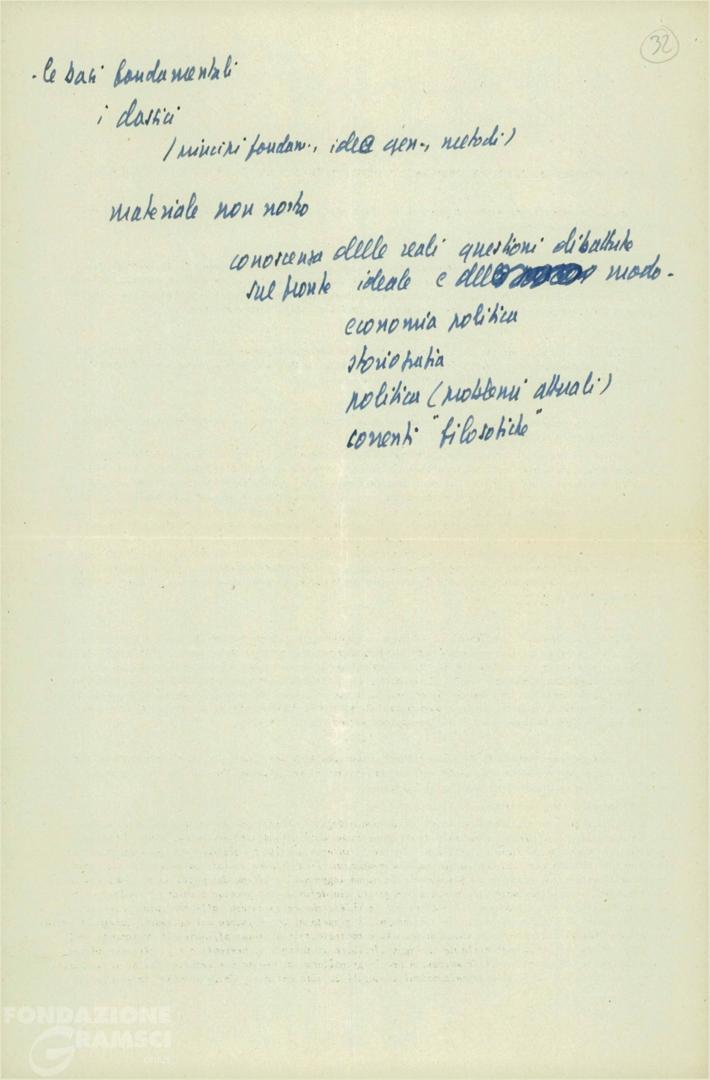 32
- le basi fondamentali
i classici
(principi fondam., idee gen., metodi)
materiale non nostro
conoscenza delle reali questioni dibattute
sul fronte ideale e del modo -
economia politica
storiografia
politica (problemi attuali)
correnti "filosofiche"
FONDAZIONE
GRAMSCI